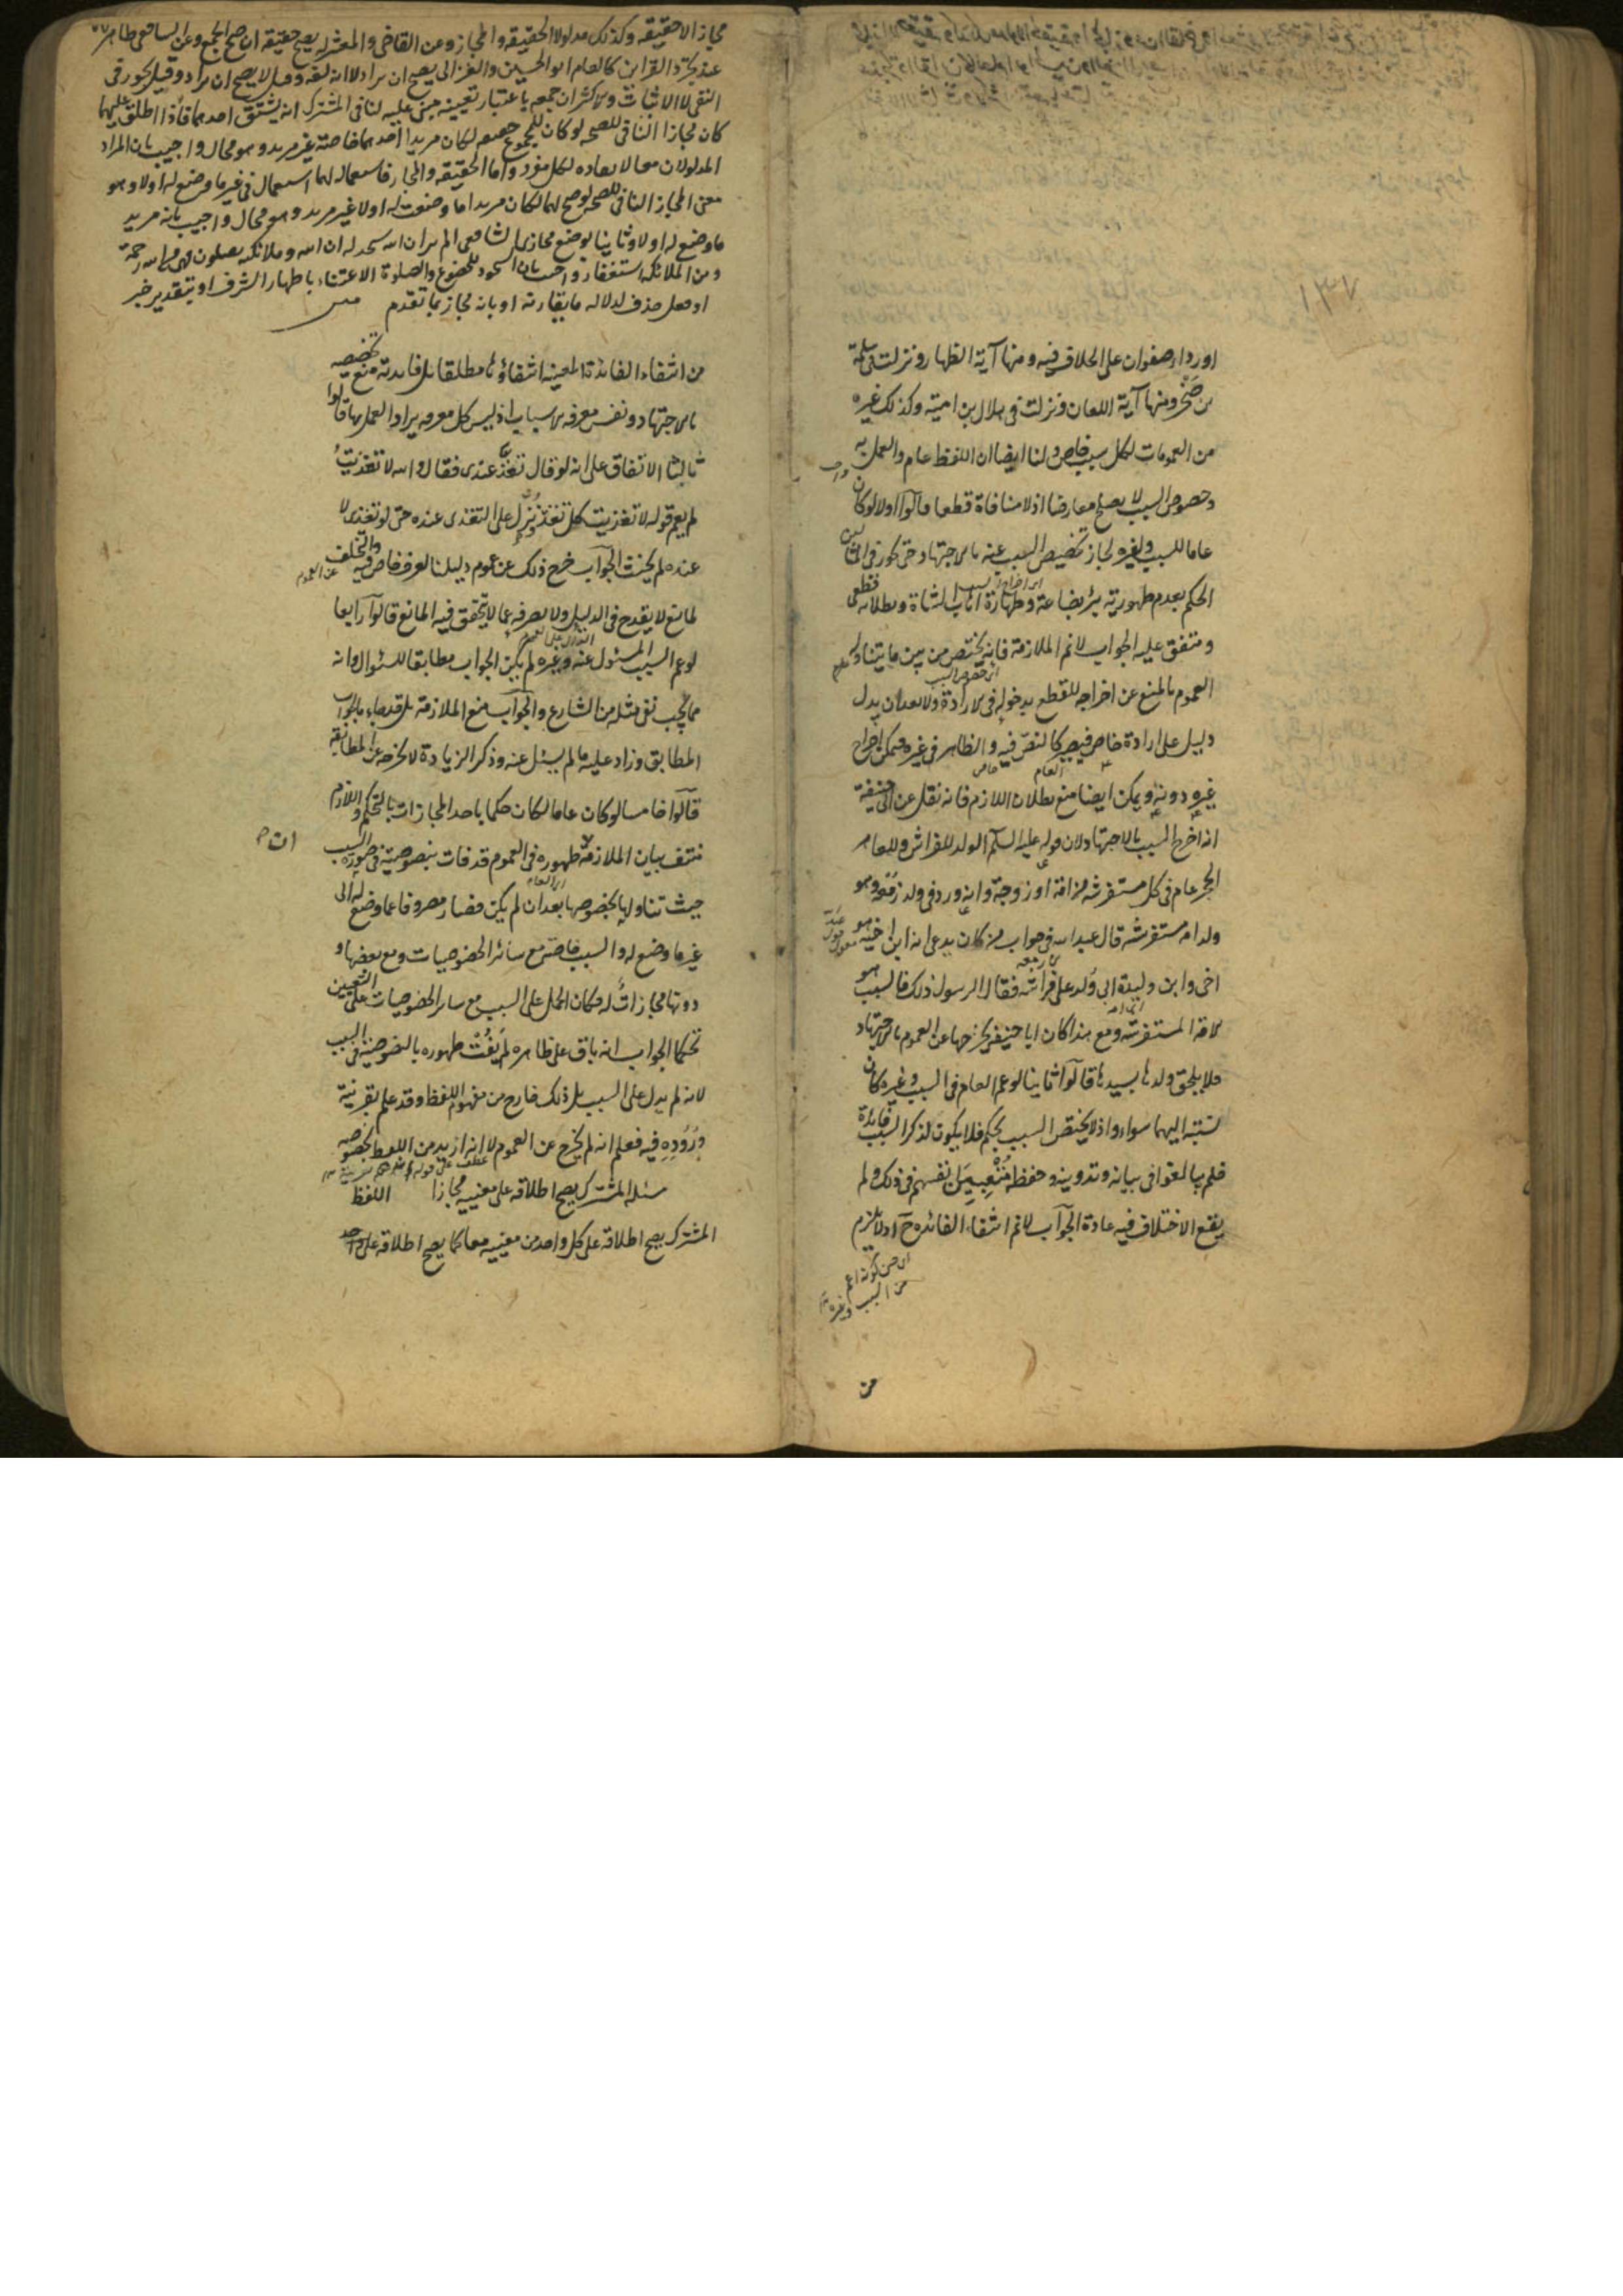 او رداء صفوان على الخلاف فيه ومنها آية الظهار ونزلت في سلمة
بن صخر ومنها آية اللعان ونزلت في هلال بن امية وكذلك غيره
من العمومات لكل سبب خاص ولنا ايضا ان اللفظ عام والعمل به
وخصوص السبب لا يصلح معارضا اذ لا منافاة قطعا قالوا اولا لو كان
عاما للسبب ولغيره لجاز تخصيص السبب عنه بالاجتهاد حتى يجوز في المثالين
الحكم بعدم طهورية بئر بضاعة وطهارة اهاب الشاة وبطلانه قطعي
ومتفق عليه الجواب لا نم الملازمة فانه يختص من بين ما يتناوله
العموم بالمنع عن اخراجه للقطع بدخوله في الارادة ولا بعد ان يدل
دليل على ارادة خاص فيصير كالنص فيه والظاهر في غيره فيمكن اخراج
غيره دونه ويمكن ايضا منع بطلان اللازم فانه نقل عن ابي حنيفة
انه اخرج السبب بالاجتهاد لان قوله عليه السلم الولد للفراش وللعاهر
الحجر عام في كل مستفرشة من امة او زوجة وانه ورد في ولد زمعة وهو
ولد امة مستفرشة قال عبد الله في جواب من كان يدعى انه ابن اخيه هو
اخي وابن وليدة ابي ولد على فراشه فقال الرسول ذلك فالسبب هو
الامة المستفرشة ومع هذا كان ابا حنيفة يخرجها عن العموم بالاجتهاد
فلا يلحق ولدها بسيدها قالوا ثانيا لو عم العام في السبب وغيره كان
نسبته اليهما سواء واذ لا يختص السبب بحكم فلا يكون لذكر السبب فائدة
فلم بالغوا في بيانه وتدوينه وحفظه متعبين انفسهم في ذلك ولم
يقع الاختلاف فيه عادة الجواب لا نم انتفاء الفائدة ح اذ لا يلزم
من
مجازا لا حقيقة وكذلك مدلولا الحقيقة والمجاز وعن القاضي والمعتزلة يصح حقيقة ان صح الجمع وعن الشافعي ظاهر
عند تجرد القرائن كالعام ابو الحسين والغزالي يصح ان يراد لا انه لغة وقيل لا يصح ان يراد وقيل يجوز في
النفي لا الاثبات والاكثر ان جمعه باعتبار معنييه مبني عليه لنا في المشترك انه يسبق احدهما فاذا اطلق عليهما
كان مجازا النافي للصحة لو كان للمجموع حقيقة لكان مريدا احدهما خاصة غير مريد وهو محال واجيب بان المراد
المدلولان معا لا بقاءه لكل مفرد واما الحقيقة والمجاز فاستعماله لهما استعمال في غير ما وضع له اولا وهو
معنى المجاز النافي للصحة لو صح لهما لكان مريدا ما وضعت له اولا غير مريد وهو محال واجيب بانه مريد
ما وضع له اولا وثانيا بوضع مجازي الشافعي الم تر ان الله يسجد له ان الله وملائكته يصلون وهي من الله رحمة
ومن الملائكة استغفار واجيب بان السجود للخضوع والصلوة الاعتناء باظهار الشرف او بتقدير خبر
او فعل حذف لدلالة ما يقارنه او بانه مجاز بما تقدم
من انتفاء الفائدة المعينة انتفاؤها مطلقا بل فائدته منع تخصيصه
بالاجتهاد ونفس معرفة الاسباب اذ ليس كل معرفة يراد العمل بها قالوا
ثالثا الاتفاق على انه لو قال تغد عندي فقال والله لا تغديت
لم يعم قوله لا تغديت كل تغد ونزل على التغدي عنده حتى لو تغدى لا
عنده لم يحنث الجواب خرج ذلك عن عموم دليلنا لعرف خاص فيه والتخلف
لمانع لا يقدح في الدليل ولا يصرفه عما لا يتحقق فيه المانع قالوا رابعا
لو عم السبب المسئول عنه وغيره لم يكن الجواب مطابقا للسئوال وانه
مما يجب نفي مثله من الشارع والجواب منع الملازمة بل قد جاء بالجواب
المطابق وزاد عليه ما لم يسئل عنه وذكر الزيادة لا يخرجه عن المطابقة
قالوا خامسا لو كان عاما لكان حكما باحد المجازات بالتحكم واللازم
منتف بيان الملازمة ظهوره في العموم قد فات بنصوصيته في صورة السبب
حيث تناولها بخصوصها بعد ان لم يكن فصار مصروفا عما وضع له الى
غير ما وضع له والسبب خاصة مع سائر الخصوصيات ومع بعضها و
دونها مجازات له فكان الحمل على السبب مع سائر الخصوصيات على التعيين
تحكما الجواب انه باق على ظاهره لم يفت ظهوره بالنصوصية في السبب
لانه لم يدل على السبب بل ذلك خارج من مفهوم اللفظ وقد علم بقرينة
وروده فيه فعلم انه لم يخرج عن العموم لا انه اريد من اللفظ بخصوصه
مسئلة المشترك يصح اطلاقه على معنييه مجازا اللفظ
المشترك يصح اطلاقه على كل واحد من معنييه معا كما يصح اطلاقه على واحد